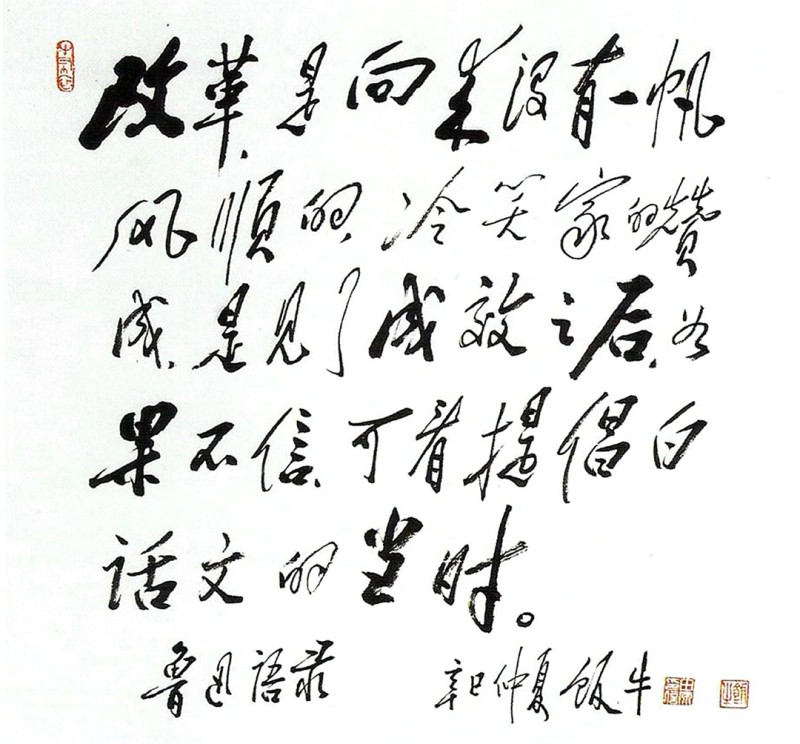 改革是向来没有一帆
风顺的，冷笑家的赞
成，是见了成效之后，如
果不信，可看提倡白
话文的当时。
鲁迅语录
辛巳仲夏 饭牛